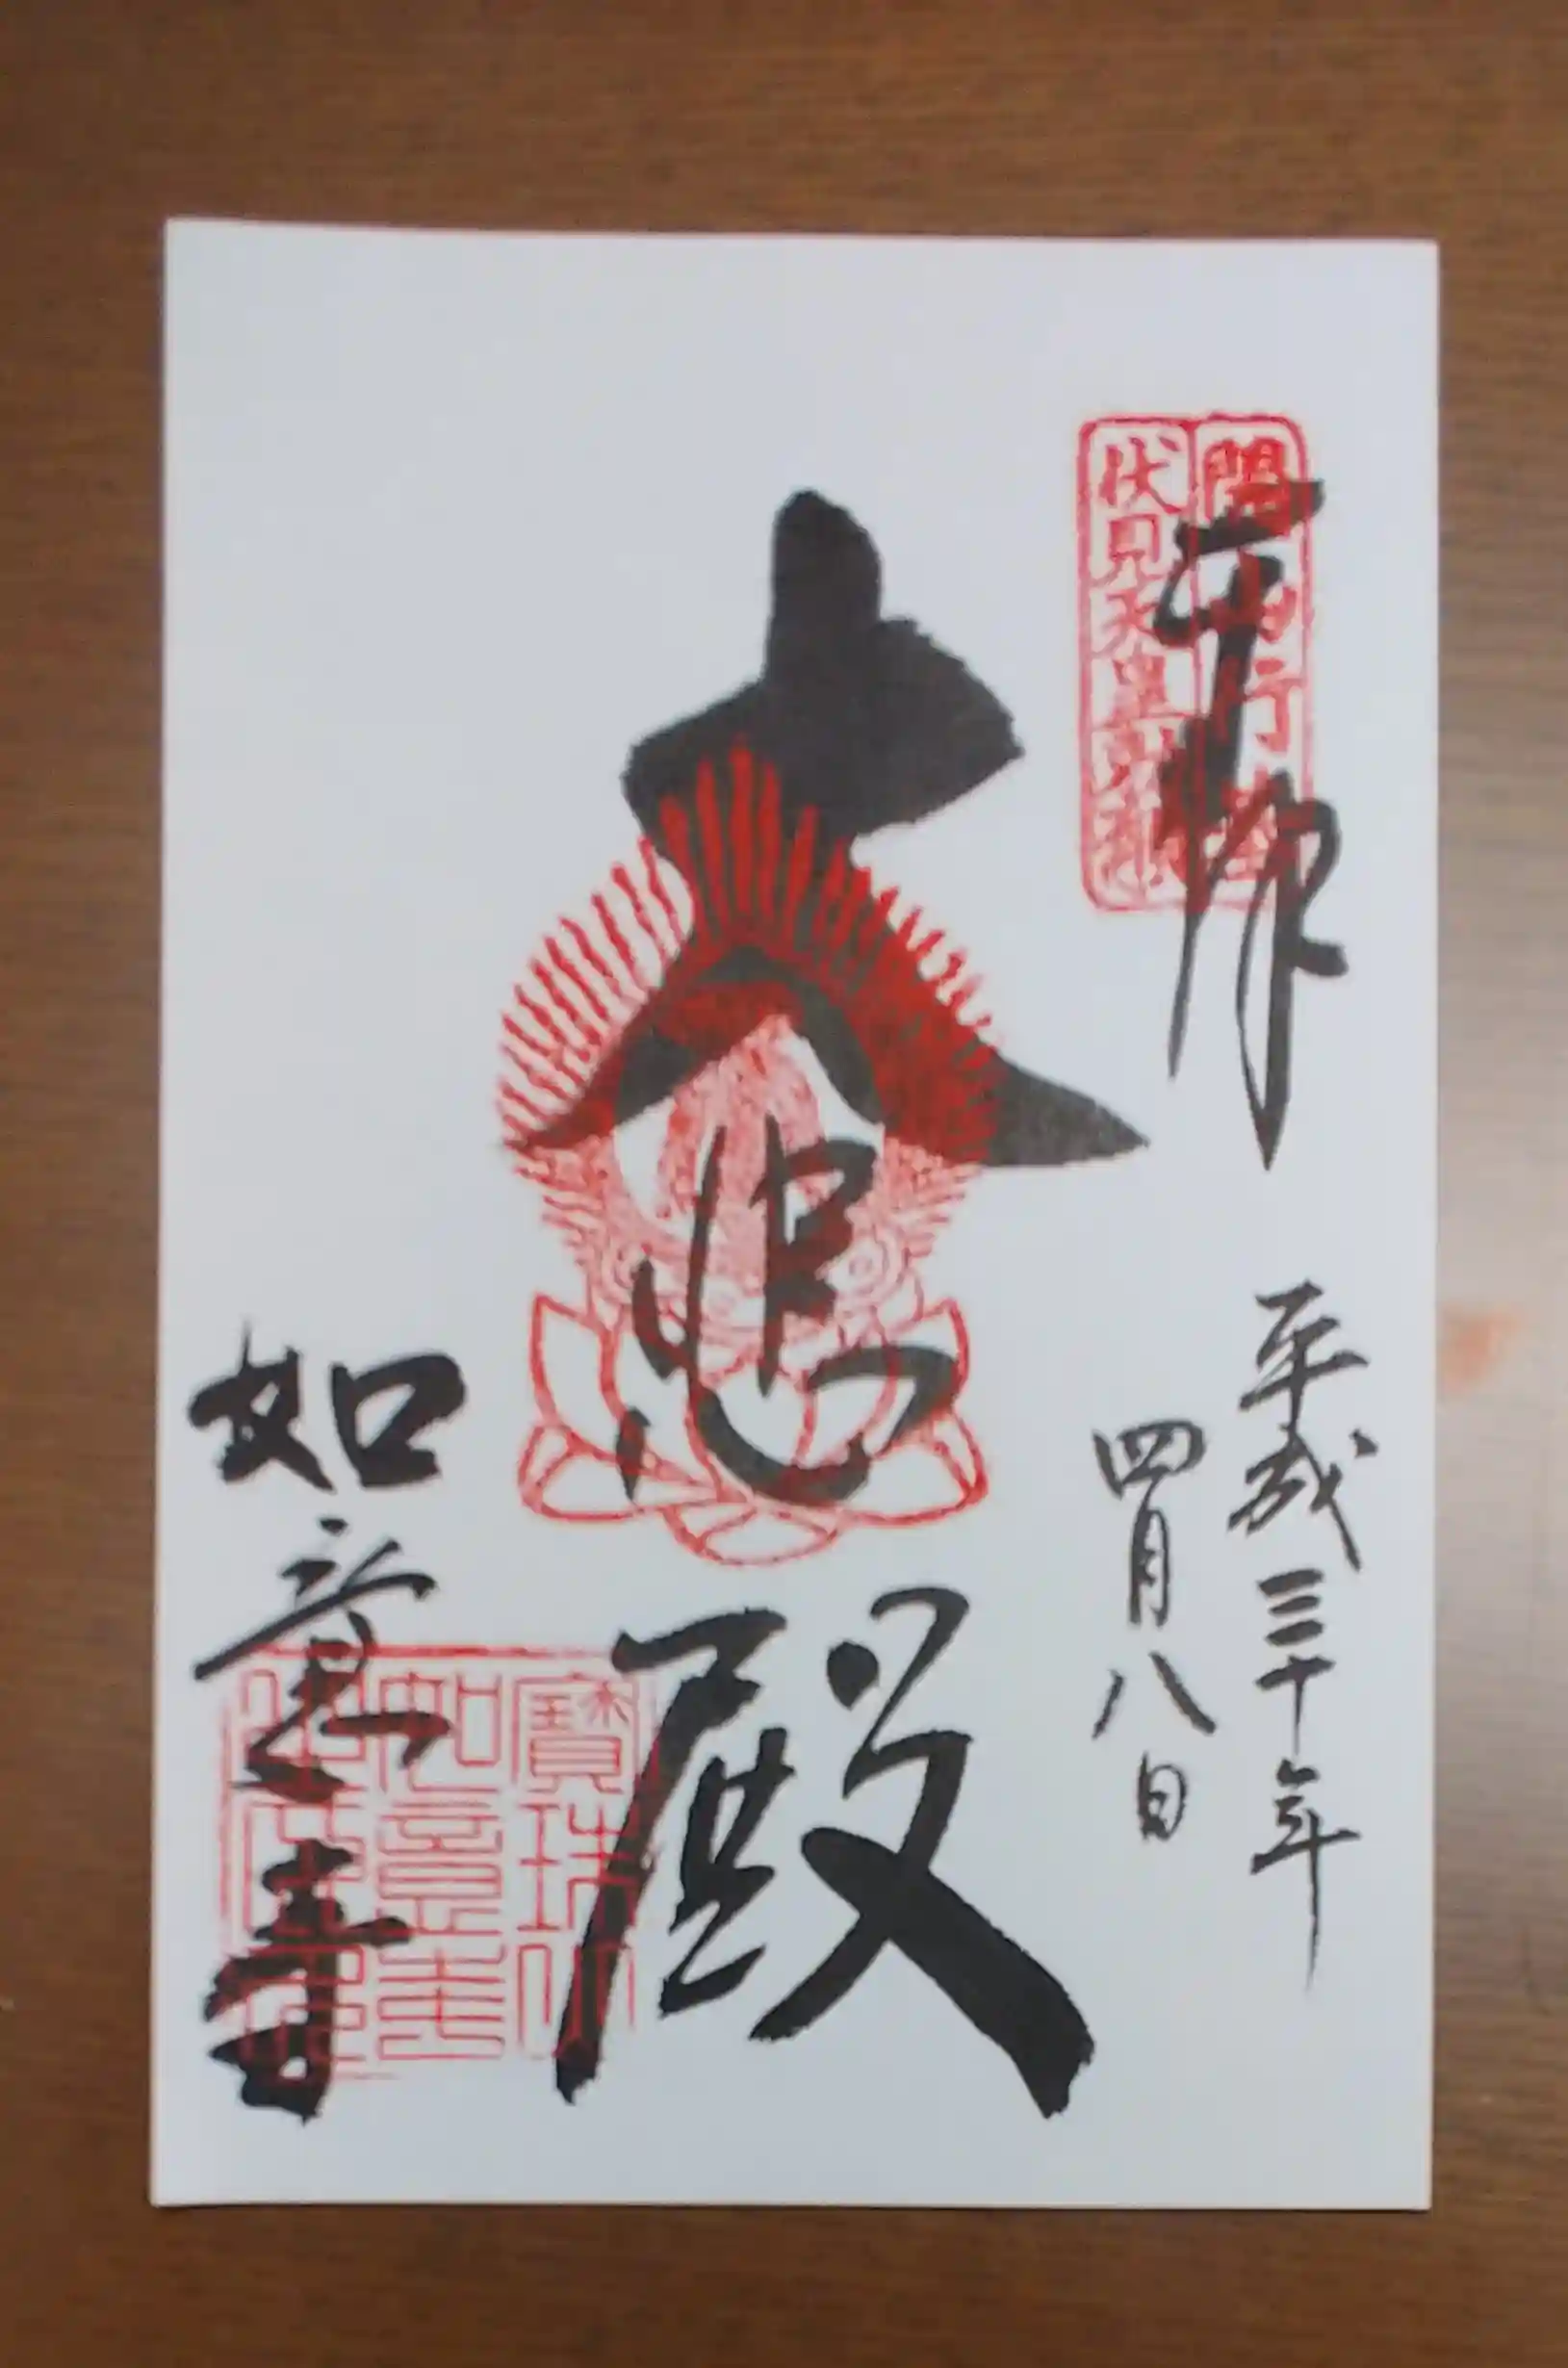 奉拝
開山行基
伏見天皇勅願
平成三十年
四月八日
大悲殿
如意寺
寶珠山
如意寺